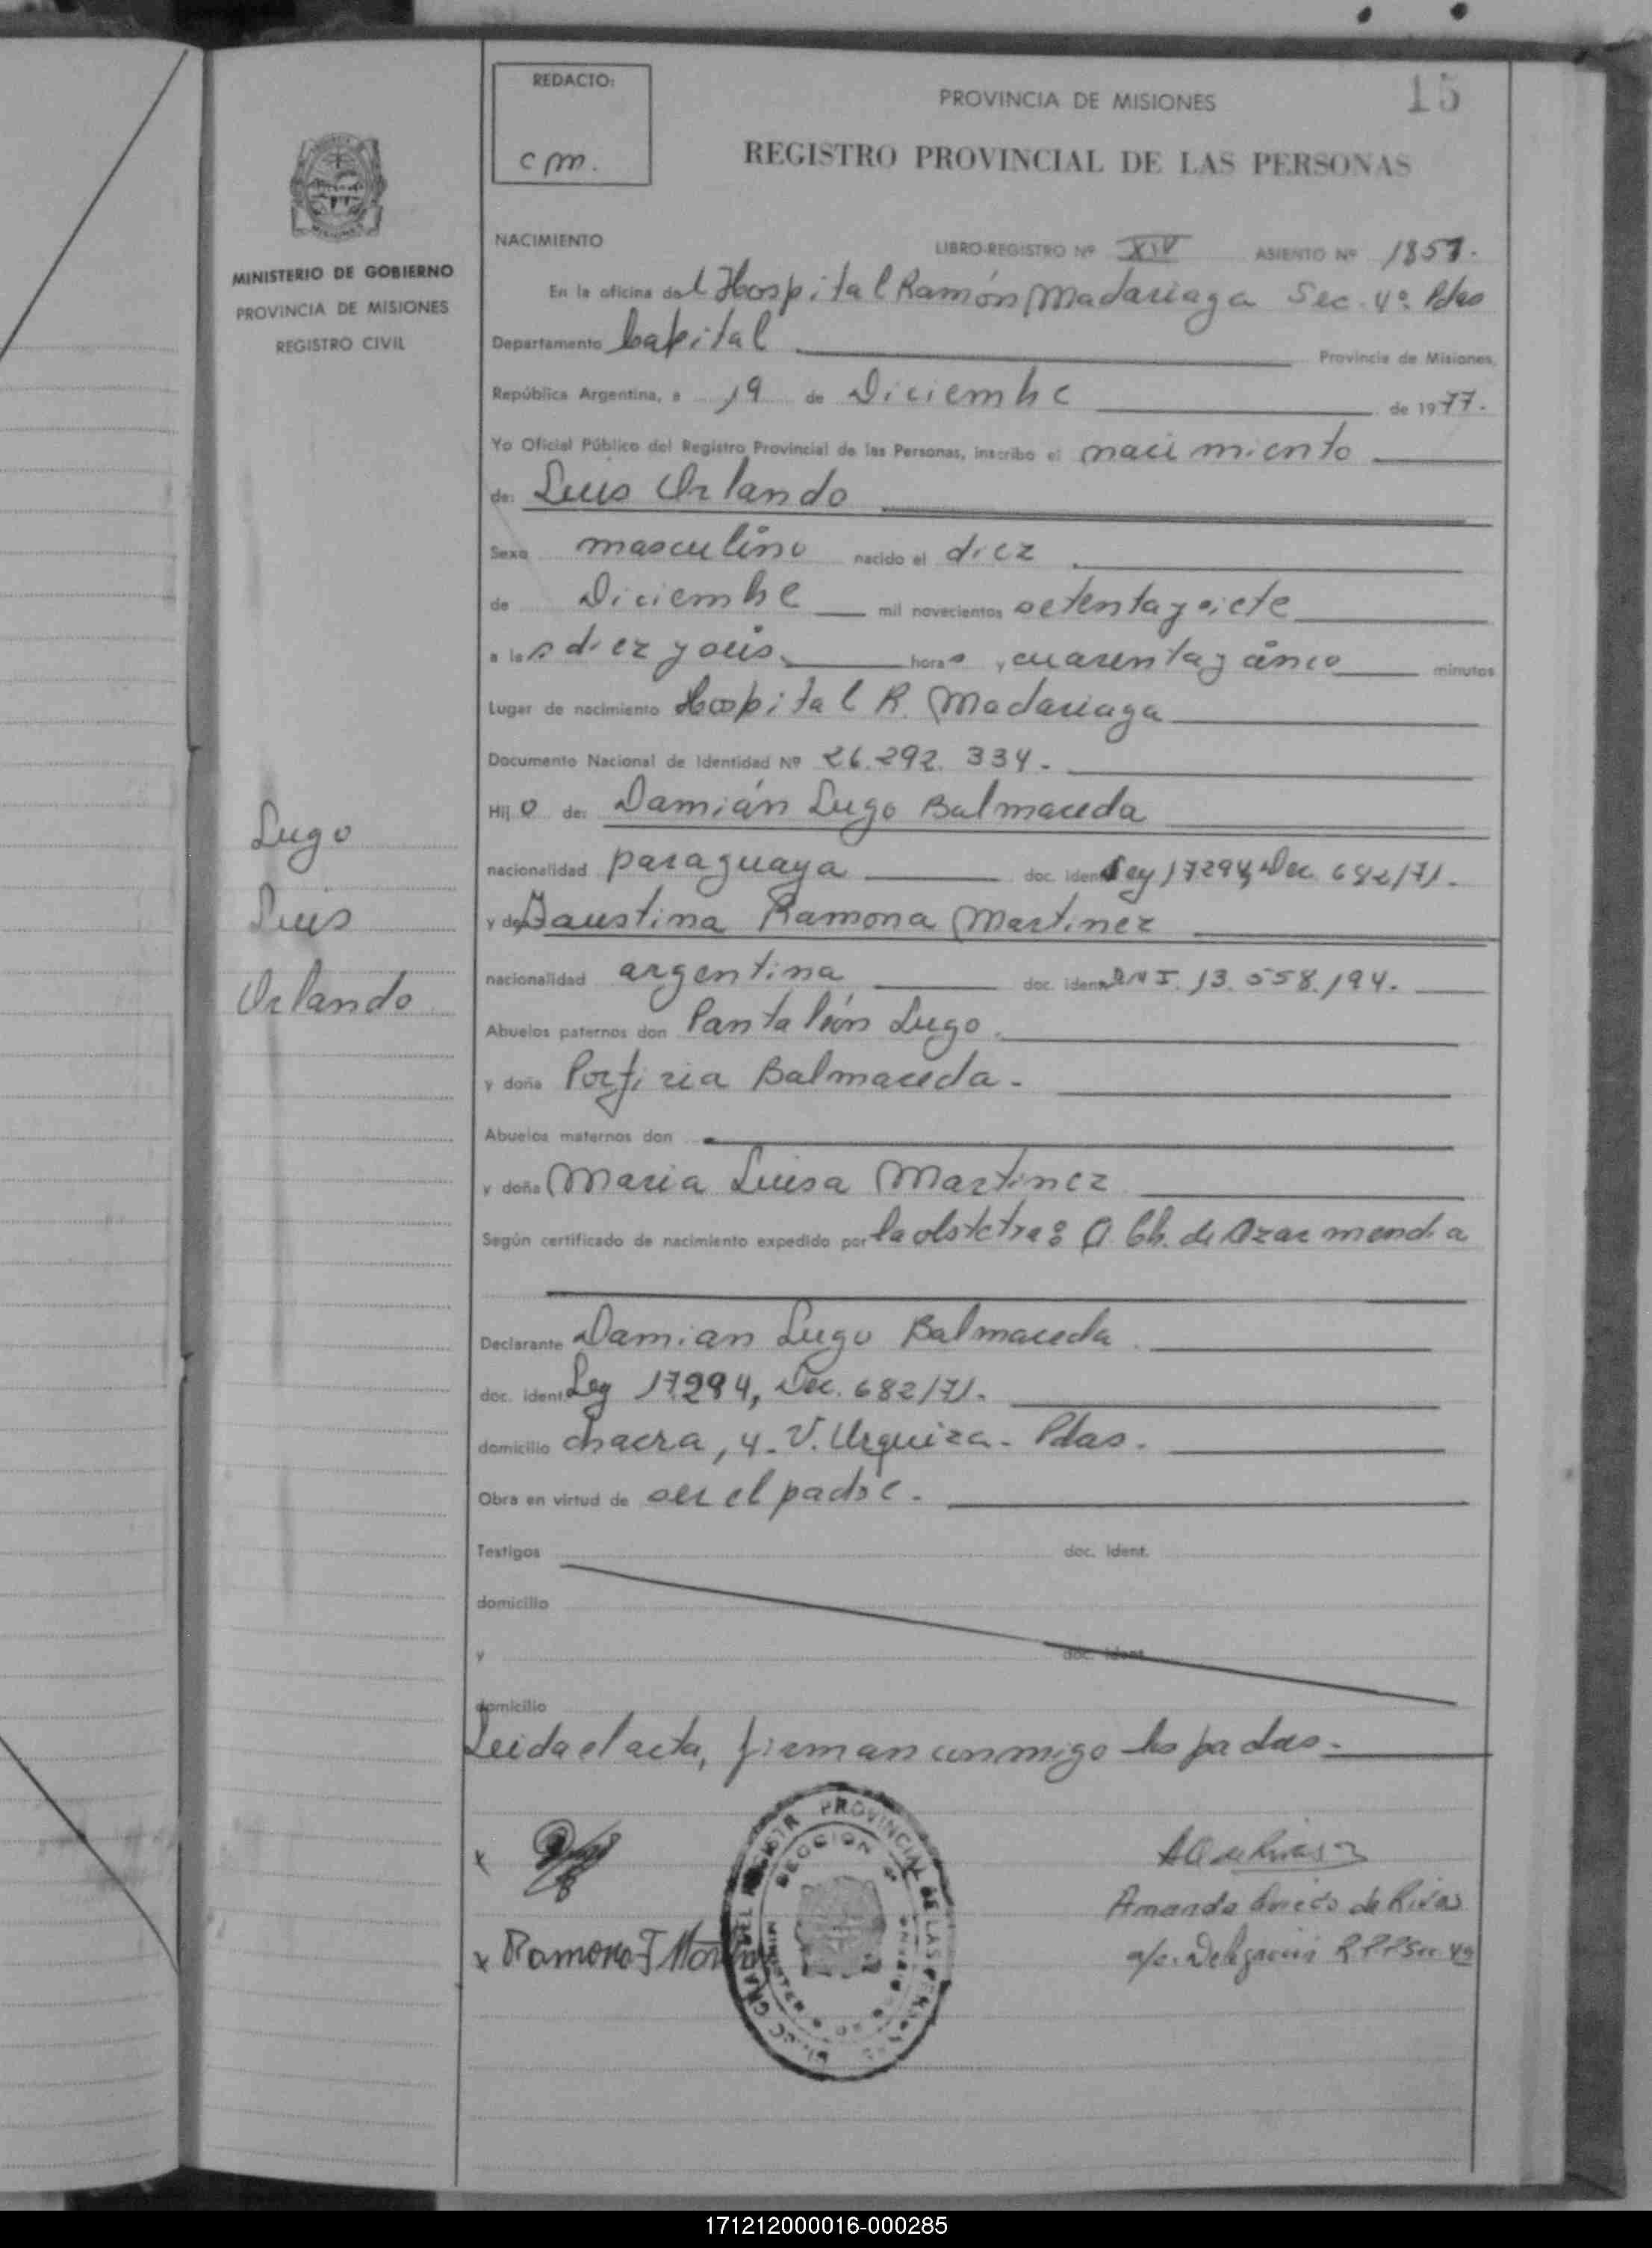 15
REDACTO:
cpm.
PROVINCIA DE MISIONES
REGISTRO PROVINCIAL DE LAS PERSONAS
MINISTERIO DE GOBIERNO
PROVINCIA DE MISIONES
REGISTRO CIVIL
NACIMIENTO LIBRO-REGISTRO Nº XIV ASIENTO Nº 1857.
En la oficina del Hospital Ramón Madariaga Sec. 4º Pdas
Departamento Capital Provincia de Misiones,
República Argentina, a 19 de Diciembre de 1977.
Yo Oficial Público del Registro Provincial de las Personas, inscribo el nacimiento
de: Luis Orlando
Sexo masculino nacido el diez
de Diciembre mil novecientos setenta y siete
a las diez y seis horas y cuarenta y cinco minutos
Lugar de nacimiento Hospital R. Madariaga
Documento Nacional de Identidad Nº 26.292.334.
Hijo de: Damián Lugo Balmaceda
nacionalidad paraguaya doc. ident. Ley 17294, Dec. 682/71.
y de Faustina Ramona Martinez
nacionalidad argentina doc. ident. DNI. 13.558.194.
Abuelos paternos don Pantaleón Lugo.
y doña Porfiria Balmaceda.
Abuelos maternos don
y doña Maria Luisa Martinez
Según certificado de nacimiento expedido por la obstetra: A. Ch. de Azarmendia
Declarante Damian Lugo Balmaceda.
doc. ident. Ley 17.294, Dec. 682/71.
domicilio chacra, 4. V. Urquiza. Pdas.
Obra en virtud de ser el padre.
Testigos doc. ident.
domicilio
y doc. ident.
domicilio
Leida el acta, firman conmigo los padres.
Lugo
Luis
Orlando
x
x Ramona F Martinez
REGISTR PROVINCIAL DE LAS PERSONAS
SECCION 4
Amanda Oviedo de Rivas
a/c. Delegacion R.P.P Sec 4a
171212000016-000285